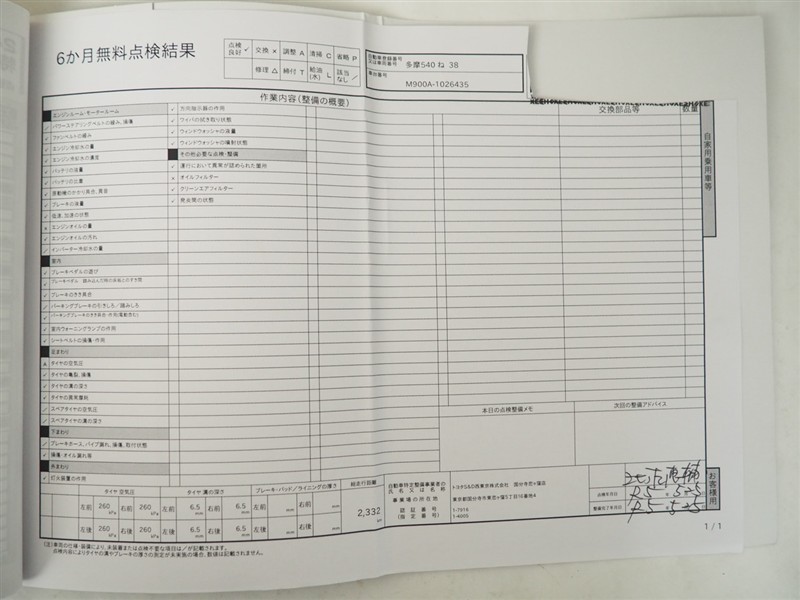 6か月無料点検結果
点検良好 ✓ 交換 × 調整 A 清掃 C 省略 P
修理 △ 締付 T 給油(水) L 該当なし ／
自動車登録番号又は車両番号 多摩540 ね 38
車台番号 M900A-1026435
作業内容(整備の概要)
交換部品等 数量
自家用乗用車等
エンジンルーム・モータールーム
パワーステアリングベルトの緩み、損傷
ファンベルトの緩み
エンジン冷却水の量
エンジン冷却水の濃度
バッテリの液量
バッテリの比重
原動機のかかり具合、異音
ブレーキの液量
低速、加速の状態
エンジンオイルの量
エンジンオイルの汚れ
インバーター冷却水の量
室内
ブレーキペダルの遊び
ブレーキペダル 踏み込んだ時の床板とのすき間
ブレーキのきき具合
パーキングブレーキの引きしろ／踏みしろ
パーキングブレーキのきき具合・作用(電動含む)
室内ウォーニングランプの作用
シートベルトの損傷・作用
足まわり
タイヤの空気圧
タイヤの亀裂、損傷
タイヤの溝の深さ
タイヤの異常摩耗
スペアタイヤの空気圧
スペアタイヤの溝の深さ
下まわり
ブレーキホース、パイプ漏れ、損傷、取付状態
損傷・オイル漏れ等
外まわり
灯火装置の作用
方向指示器の作用
ワイパの拭き取り状態
ウィンドウォッシャの液量
ウィンドウォッシャの噴射状態
その他必要な点検・整備
運行において異常が認められた箇所
オイルフィルター
クリーンエアフィルター
発炎筒の状態
本日の点検整備メモ 次回の整備アドバイス
タイヤ 空気圧 タイヤ 溝の深さ ブレーキ・パッド／ライニングの厚さ 総走行距離
左前 260 kPa 右前 260 kPa 左前 6.5 mm 右前 6.5 mm 左前 mm 右前 mm
左後 260 kPa 右後 260 kPa 左後 6.5 mm 右後 6.5 mm 左後 mm 右後 mm
2,332 km
自動車特定整備事業者の氏名又は名称 トヨタS&D西東京株式会社
事業場の所在地
認証番号 1-7916
(指定番号) 1-4005
点検年月日 R5.5.25
整備完了年月日 R5.5.25
お客様用
1 / 1
(注)車両の仕様・装備により、未装着または点検不要な項目は／が記載されます。
点検内容によりタイヤの溝やブレーキの厚さの測定が未実施の場合、数値は記載されません。